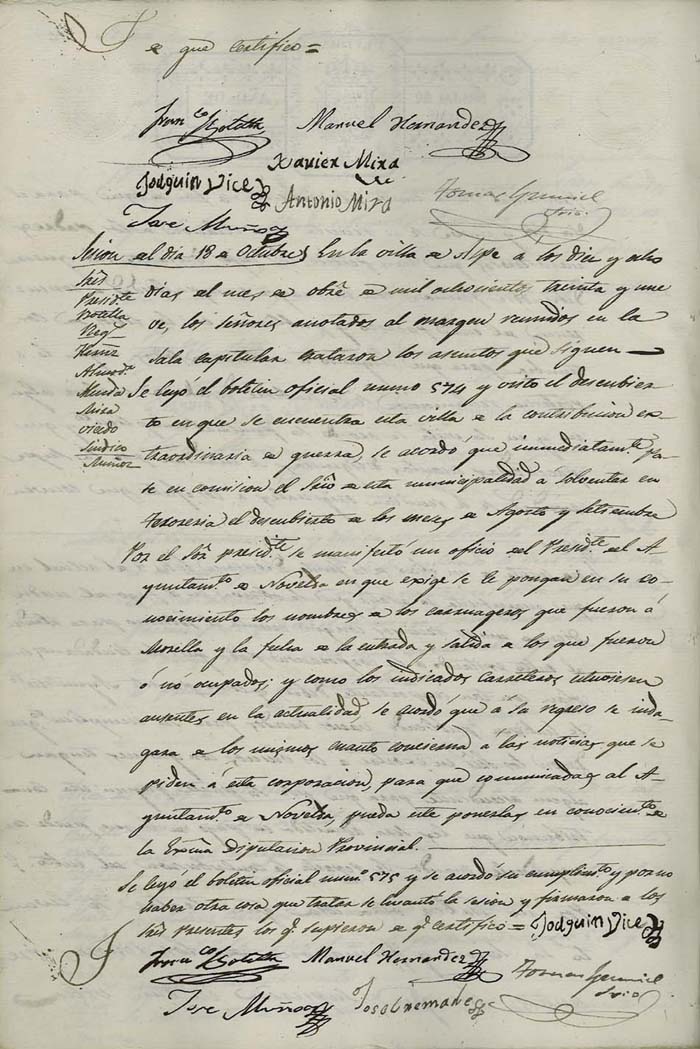 de que certifico =
Franco Botella Manuel Hernandez
Xavier Mira
Joaquin Vice
Antonio Mira
Tomas
Srio.
Jose Muñoz
Sesion del dia 18 de Octubre
Sres
Preside
Botella
Reg
Hernz
Almoda
Mira
vicedo
Sindico
Muñoz
En la villa de Aspe a los diez y ocho
dias del mes de obre de mil ochocientos treinta y nue
ve, los señores anotados al margen reunidos en la
sala capitular trataron los asuntos que siguen —
Se leyó el boletin oficial numo 574 y visto el descubier
to en que se encuentra esta villa de la contribucion ex-
traordinaria de guerra, se acordó que immediatamte pa-
se en comision el Srio de esta municipalidad á solventar en
tesoreria el descubierto de los meses de Agosto y Setiembre
Por el Sor presidte se manifestó un oficio del Presidte del A-
yuntamto de Novelda en que exige se le pongan en su co-
nocimiento los nombres de los carruageros que fueron á
Morella y la fecha de la entrada y salida de los que fueron
ó nó ocupados; y como los indicados carreteros estuviesen
ausentes en la actualidad, se acordó que á su regreso se inda-
gara de los mismos cuanto concierna á las noticias que se
piden á esta corporacion, para que comunicadas al A-
yuntamto de Novelda, pueda este ponerlas en conocimto de
la Exma Diputacion Provincial.
Se leyó el boletin oficial numo 575 y se acordó su cumplimto y por no
haber otra cosa que tratar se levantó la sesion y firmaron de los
Sres presentes los q supieron de q certifico =
Joaquin Vice
Franco Botella Manuel Hernandez
Tomas
Srio
Jose Muñoz Jose Cremades